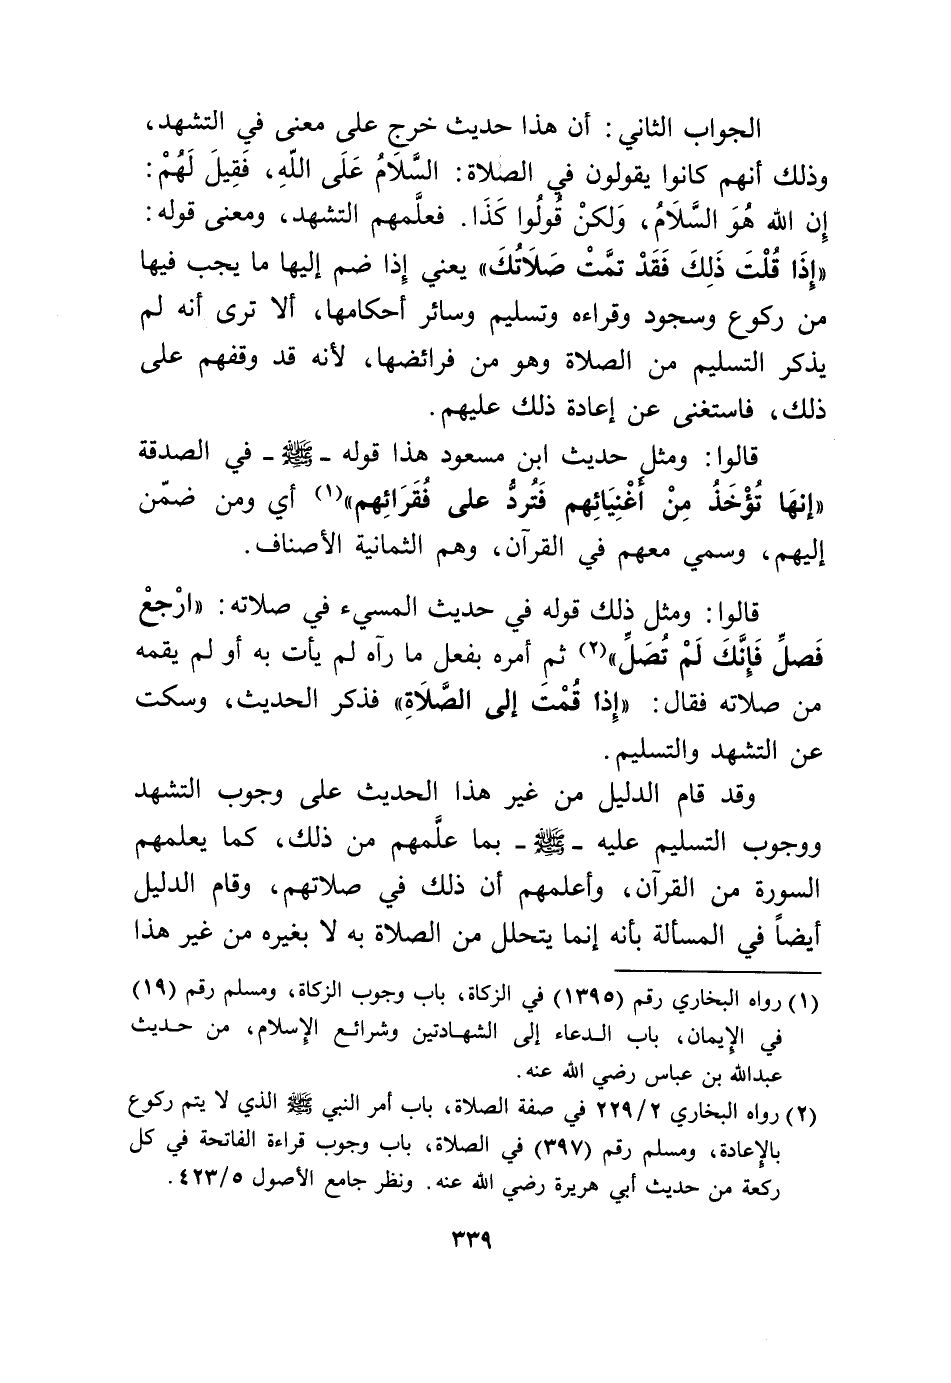 الجواب الثاني: أن هذا حديث خرج على معنى في التشهد،
وذلك أنهم كانوا يقولون في الصلاة: السَّلَامُ عَلَى اللّهِ، فَقِيلَ لَهُمْ:
إِن الله هُوَ السَّلَامُ، وَلكنْ قُولُوا كَذَا. فعلَّمهم التشهد، ومعنى قوله:
«إِذَا قُلْتَ ذَلِكَ فَقَدْ تمَّتْ صَلَاتُكَ» يعني إِذا ضم إليها ما يجب فيها
من ركوع وسجود وقراءه وتسليم وسائر أحكامها، ألا ترى أنه لم
يذكر التسليم من الصلاة وهو من فرائضها، لأنه قد وقفهم على
ذلك، فاستغنى عن إعادة ذلك عليهم.
قالوا: ومثل حديث ابن مسعود هذا قوله ـ ﷺ ـ في الصدقة
«إنهَا تُؤْخَذُ مِنْ أَغْنِيَائِهم فَتُردُّ على فُقَرَائِهم»(١) أي ومن ضمّن
إليهم، وسمي معهم في القرآن، وهم الثمانية الأصناف.
قالوا: ومثل ذلك قوله في حديث المسيء في صلاته: «ارْجعْ
فَصلِّ فَإنَّكَ لَمْ تُصَلِّ»(٢) ثم أمره بفعل ما رآه لم يأت به أو لم يقمه
من صلاته فقال: «إِذا قُمْتَ إلى الصَّلَاةِ» فذكر الحديث، وسكت
عن التشهد والتسليم.
وقد قام الدليل من غير هذا الحديث على وجوب التشهد
ووجوب التسليم عليه ـ ﷺ ـ بما علَّمهم من ذلك، كما يعلمهم
السورة من القرآن، وأعلمهم أن ذلك في صلاتهم، وقام الدليل
أيضاً في المسألة بأنه إنما يتحلل من الصلاة به لا بغيره من غير هذا
(١) رواه البخاري رقم (١٣٩٥) في الزكاة، باب وجوب الزكاة، ومسلم رقم (١٩)
في الإيمان، باب الدعاء إلى الشهادتين وشرائع الإسلام، من حديث
عبدالله بن عباس رضي الله عنه.
(٢) رواه البخاري ٢٢٩/٢ في صفة الصلاة، باب أمر النبي ﷺ الذي لا يتم ركوع
بالإعادة، ومسلم رقم (٣٩٧) في الصلاة، باب وجوب قراءة الفاتحة في كل
ركعة من حديث أبي هريرة رضي الله عنه. ونظر جامع الأصول ٤٢٣/٥.
٣٣٩